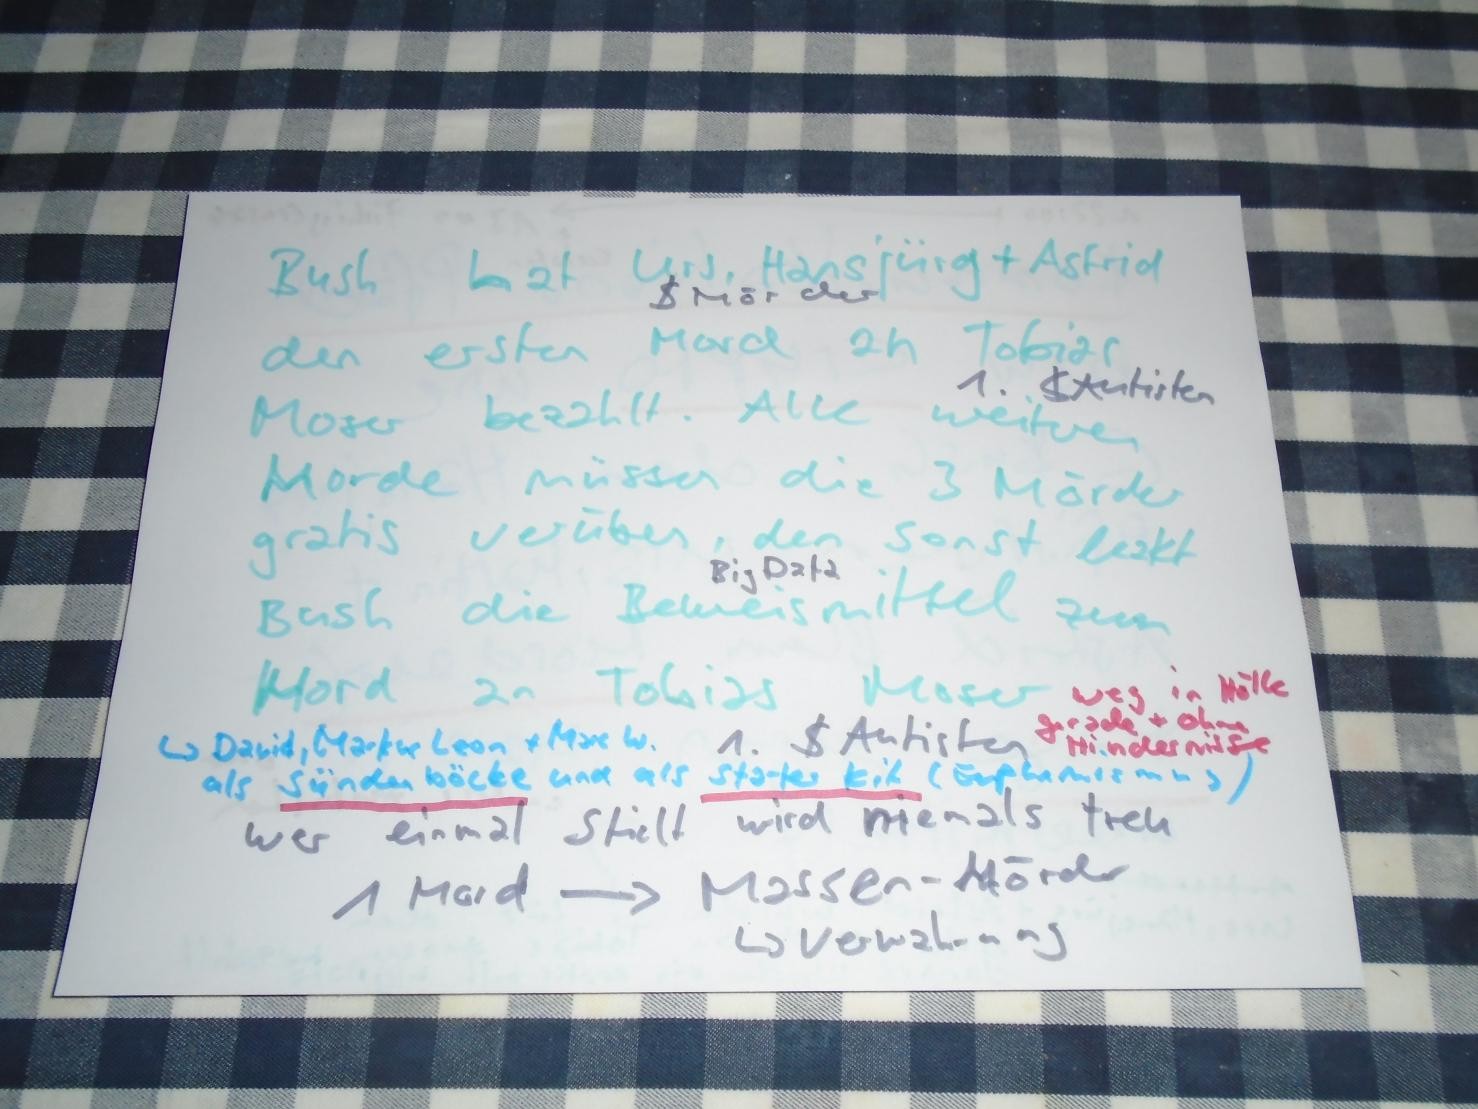 Bush hat Urs, Hansjürg + Astrid
$ Mörder
den ersten Mord an Tobias
1. $ Autisten
Moser bezahlt. Alle weiteren
Morde müssen die 3 Mörder
gratis verüben, den sonst leakt
BigData
Bush die Beweismittel zum
Mord an Tobias Moser
weg in Hölle
gerade + ohne
Hindernisse
1. $ Autisten
↳ David, Markus Leon + Marc W.
als Sündenböcke und als Starter Kit (Euphemismus)
wer einmal stielt wird niemals treu
1 Mord → Massen-Mörder
↳ Verwahrung